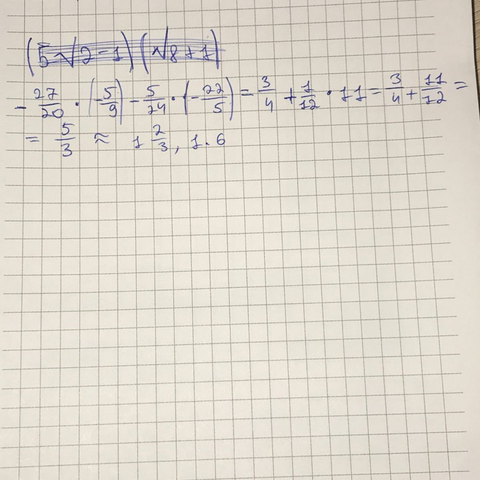 (5√2-1)(√8+1)
- 27/20 · (-5/9) - 5/24 · (-22/5) = 3/4 + 1/12 · 11 = 3/4 + 11/12 =
= 5/3 ≈ 1 2/3, 1.6